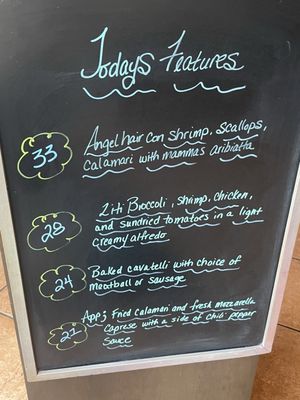 Todays Features
33 Angelhair con shrimp, scallops,
calamari with mammas aribiatta
28 Ziti Broccoli, shrimp, chicken,
and sundried tomatoes in a light
creamy alfredo
24 Baked cavatelli with choice of
Meatball or Sausage
22 App; Fried calamari and fresh mozzarella
Caprese with a side of chili pepper
Sauce